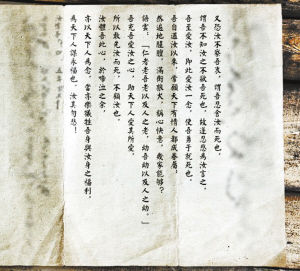 又恐汝不察吾衷，謂吾忍舍汝而死，
謂吾不知汝之不欲吾死也，故遂忍悲為汝言之。
吾至愛汝，即此愛汝一念，使吾勇于就死也。
吾自遇汝以來，常願天下有情人都成眷屬；
然遍地腥羶，滿街狼犬，稱心快意，幾家能彀？
語云，「仁者老吾老以及人之老，幼吾幼以及人之幼。」
吾充吾愛汝之心，助天下人愛其所愛，
所以敢先汝而死，不顧汝也。
汝體吾此心，於啼泣之余，
亦以天下人為念，當亦樂犧牲吾身與汝身之福利，
為天下人謀永福也。汝其勿悲！